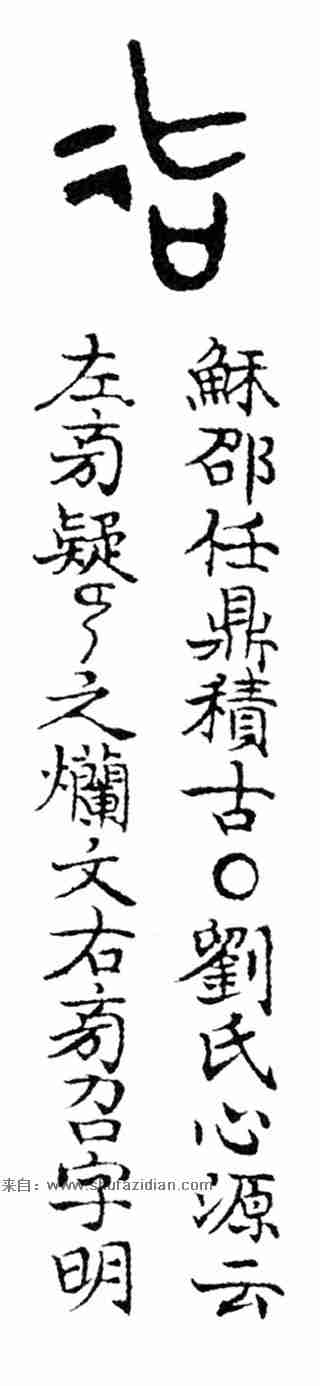 穌邵任鼎積古○劉氏心源云
左旁疑之爛文右旁召字明
来自：www.shufazidian.com